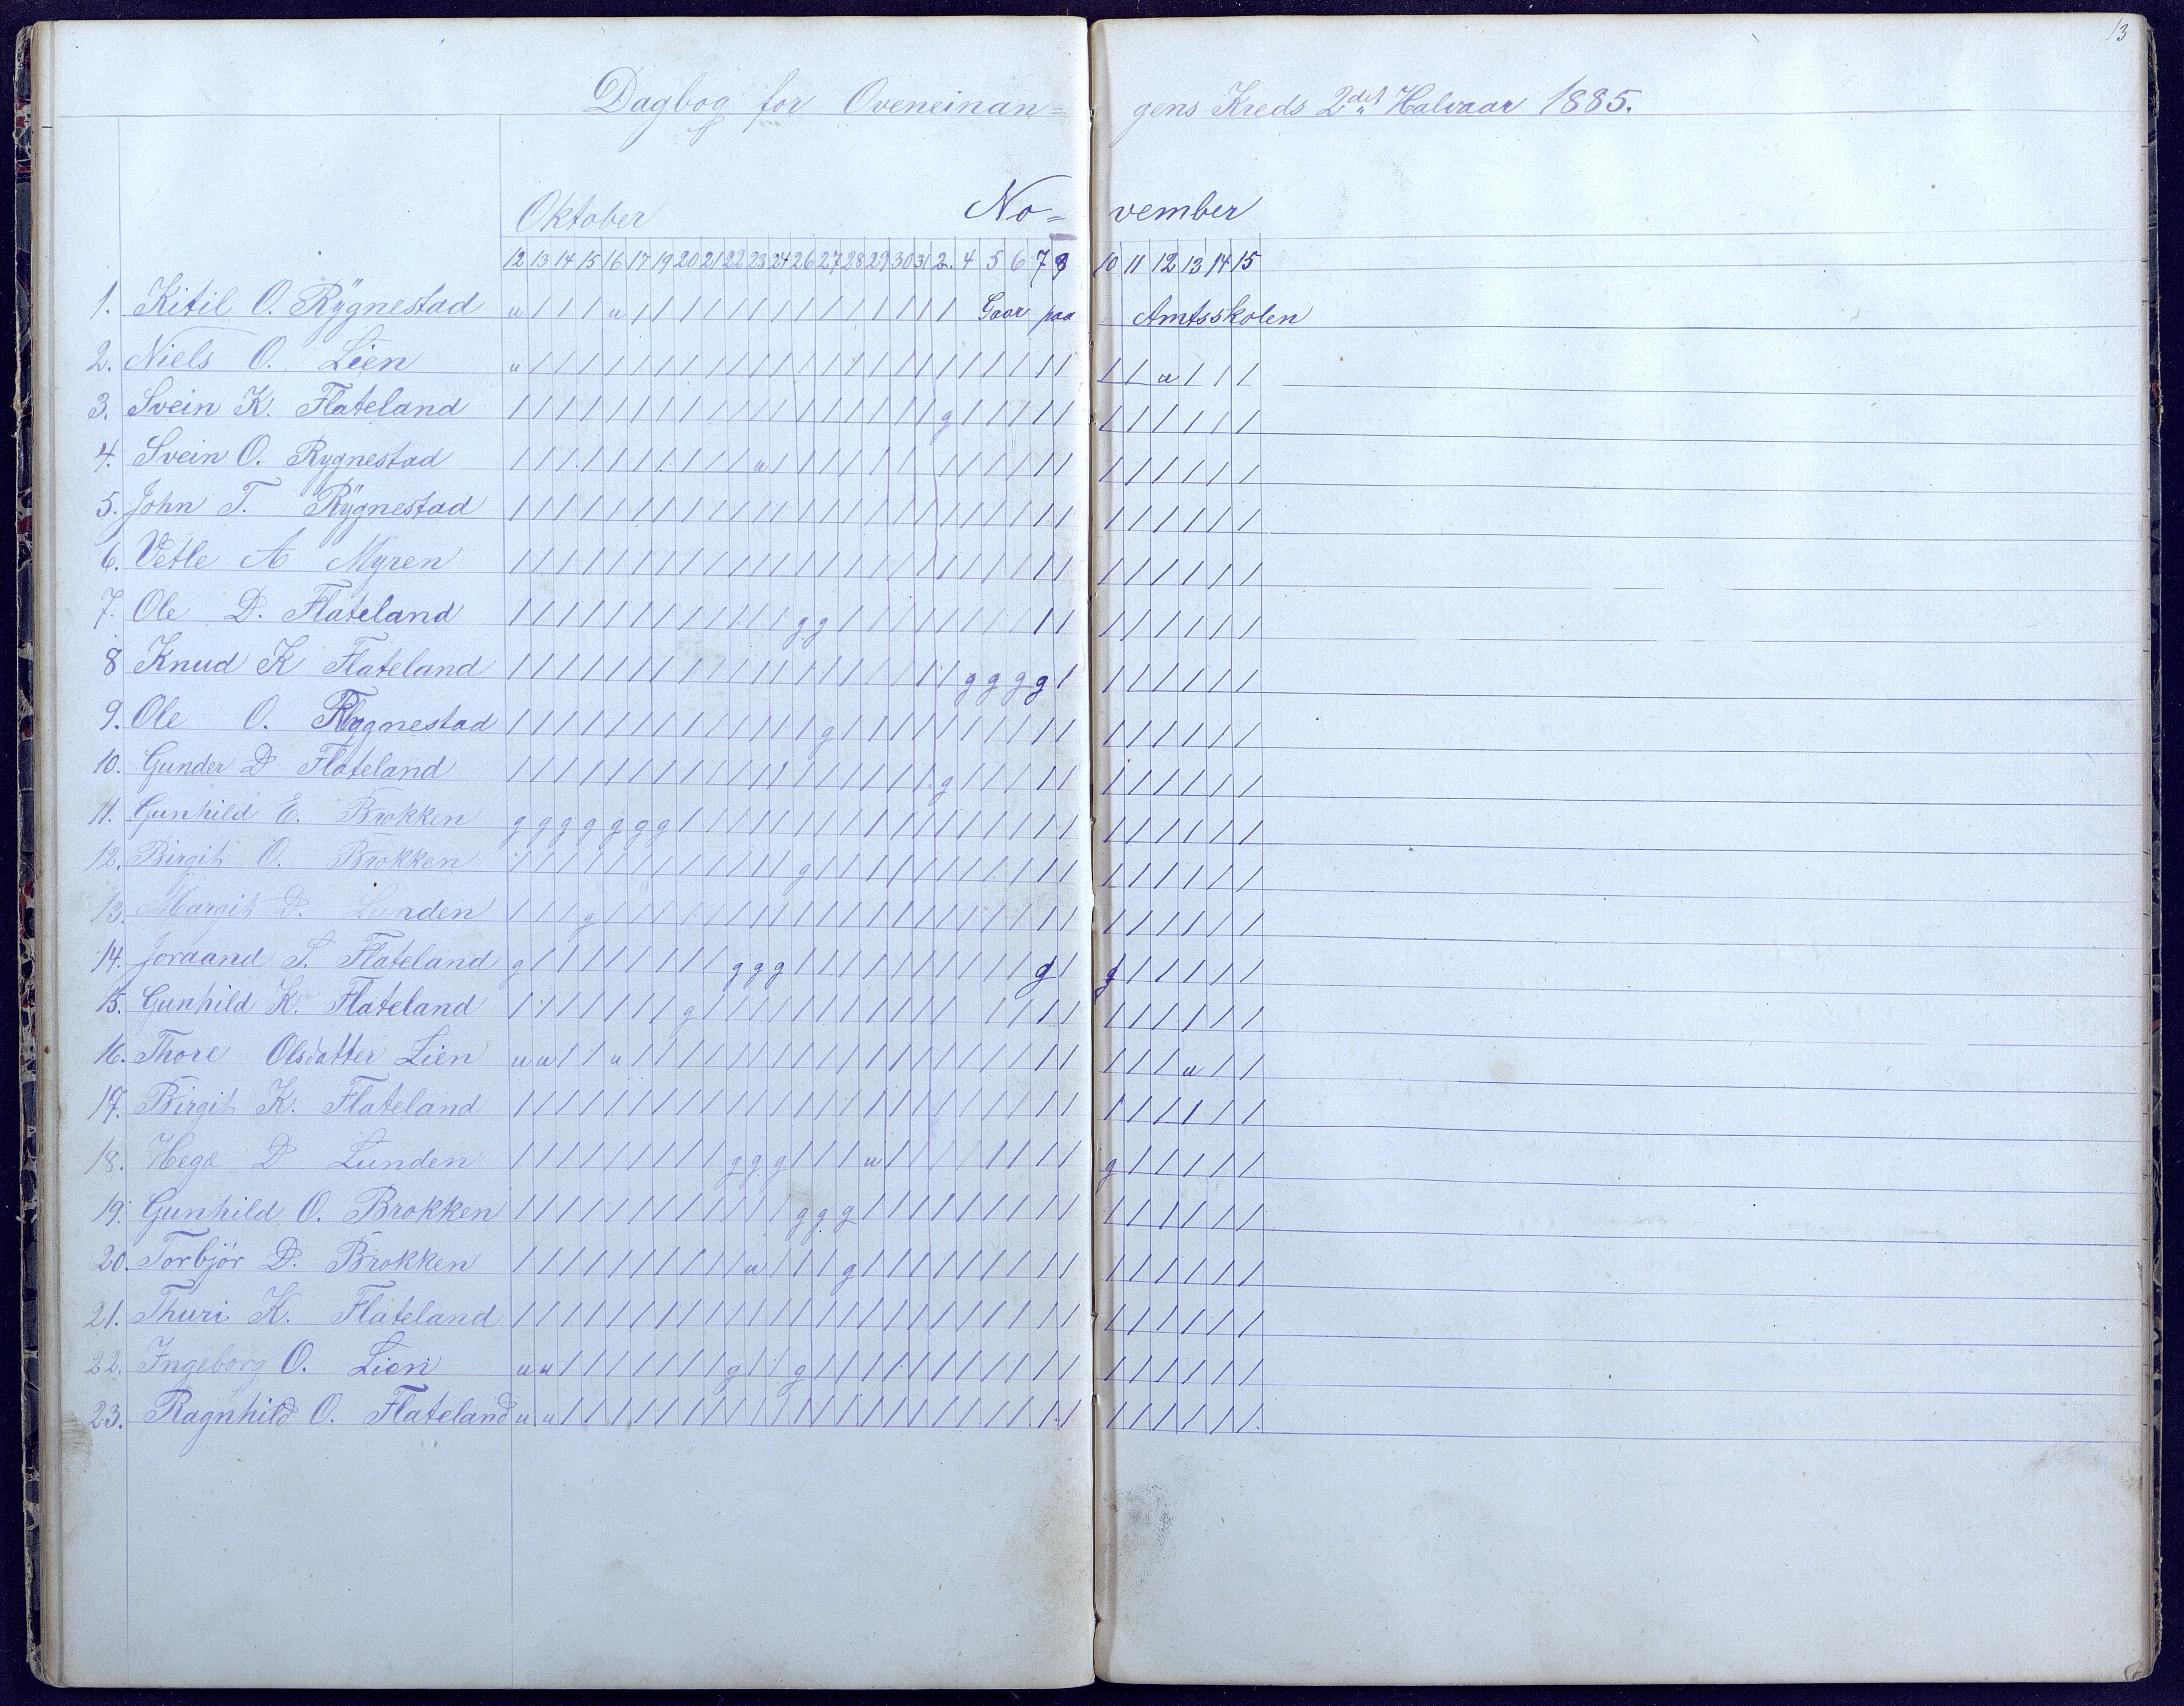 13
Dagbog for Oveneinan= gens Kreds 2det Halvaar 1885.
Oktober No= vember
12 13 14 15 16 17 19 20 21 22 23 24 26 27 28 29 30 31 2. 4 5 6 7 9 10 11 12 13 14 15
1. Kitil O. Rÿgnestad u / / / u / / / / / / / / / / / / / / Gaar paa Amtsskolen
2. Niels O. Lien u / / / / / / / / / / / / / / / / / / / / / / / / / u / / /
3. Svein K. Flateland / / / / / / / / / / / / / / / / / / g / / / / / / / / / / /
4. Svein O. Rygnestad / / / / / / / / / / u / / / / / / / / / / / / / / / / / /
5. John T. Rÿgnestad / / / / / / / / / / / / / / / / / / / / / / / / / / / / / /
6. Vetle A Myren / / / / / / / / / / / / / / / / / / / / / / / / / / / / / /
7. Ole D. Flateland / / / / / / / / / / / / g g / / / / / / / / / / / / / / / /
8 Knud K Flateland / / / / / / / / / / / / / / / / / / / g g g g / / / / / / /
9. Ole O. Rygnestad / / / / / / / / / / / / / g / / / / / / / / / / / / / / / /
10. Gunder D Flateland / / / / / / / / / / / / / / / / / / g / / / / / / / / / / /
11. Gunhild E. Brokken g g g g g g g / / / / / / / / / / / / / / / / / / / / / / /
12. Birgit O. Brokken / / / / / / / / / / / / g / / / / / / / / / / / / / / / / /
13. Margit D. Lunden / / / g / / / / / / / / / / / / / / / / / / / / / / / / / /
14. Joraand S. Flateland g / / / / / / / / g g g / / / / / / / / / / g / g / / / / /
15. Gunhild K. Flateland / / / / / / / g / / / / / / / / / / / / / / / / / / / / /
16. Thore Olsdatter Lien u u / / u / / / / / / / / / / / / / / / / / / / / / / u / /
17. Birgit K. Flateland / / / / / / / / / / / / / / / / / / / / / / / / / / / / / /
18. Hege D Lunden / / / / / / / / / g g g / / / u / / / / / / / / g / / / / /
19. Gunhild O. Brokken / / / / / / / / / / / / g g g / / / / / / / / / / / / / / /
20. Torbjør D. Brokken / / / / / / / / / / u / / / g / / / / / / / / / / / / / / /
21. Thuri K. Flateland / / / / / / / / / / / / / / / / / / / / / / / / / / / / / /
22. Ingeborg O. Lien u u / / / / / / / g / / g / / / / / / / / / / / / / / / / /
23. Ragnhild O. Flateland u u / / / / / / / / / / / / / / / / / / / / / / / / / / / /